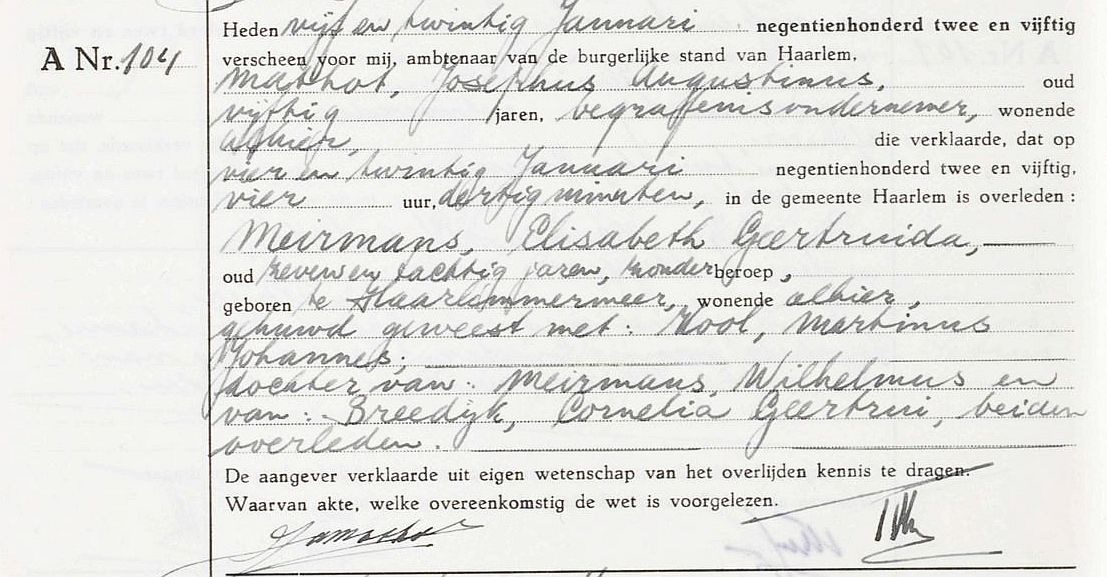 Heden vijf en twintig Januari negentienhonderd twee en vijftig
A Nr. 104
verscheen voor mij, ambtenaar van de burgerlijke stand van Haarlem,
Mathot, Josephus Augustinus, oud
vijftig jaren, begrafenisondernemer, wonende
alhier, die verklaarde, dat op
vier en twintig Januari negentienhonderd twee en vijftig,
vier uur, dertig minuten, in de gemeente Haarlem is overleden :
Meirmans, Elisabeth Geertruida,
oud zevenen tachtig jaren, zonder beroep,
geboren te Haarlemmermeer, wonende alhier,
gehuwd geweest met: Kool, Martinus
Johannes;
dochter van: Meirmans, Wilhelmus en
van: Breedijk, Cornelia Geertrui, beiden
overleden.
De aangever verklaarde uit eigen wetenschap van het overlijden kennis te dragen.
Waarvan akte, welke overeenkomstig de wet is voorgelezen.